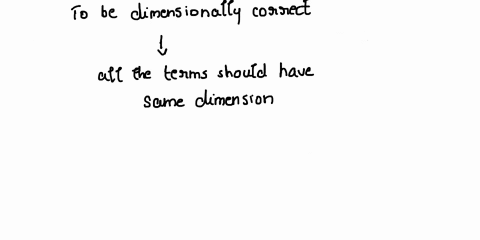 To be dimensionally correct
↓
all the terms should have
same dimension